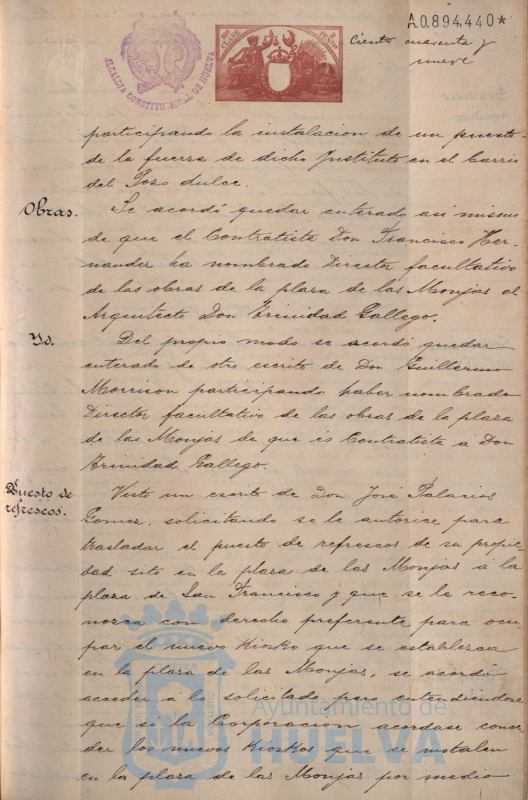 A.0.894.440*
Ciento cuarenta y
nueve
ALCALDIA CONSTITUCIONAL DE HUELVA
participando la instalacion de un puesto
de la fuerza de dicho Instituto en el barrio
del Pozo dulce.
Obras.
Se acordó quedar enterado asi mismo
de que el Contratista Don Francisco Her-
nandez ha nombrado Director facultativo
de las obras de la plaza de las Monjas al
Arquitecto Don Trinidad Gallego.
Yd.
Del propio modo se acordó quedar
enterado de otro escrito de Don Guillermo
Morrison participando haber nombrado
Director facultativo de las obras de la plaza
de las Monjas de que es Contratista a Don
Trinidad Gallego.
Puesto de
refrescos.
Visto un escrito de Don José Palacios
Gomez, solicitando se le autorice para
trasladar el puesto de refrescos de su propie-
dad sito en la plaza de las Monjas á la
plaza de San Francisco y que se le reco-
nozca con derecho preferente para ocu-
par el nuevo Kiosko que se establezca
en la plaza de las Monjas, se acordó
acceder á lo solicitado pero entendiendose
que si la Corporacion acordase conce-
der los nuevos Kioskos que se instalen
en la plaza de las Monjas por medio
Ayuntamiento de
HUELVA